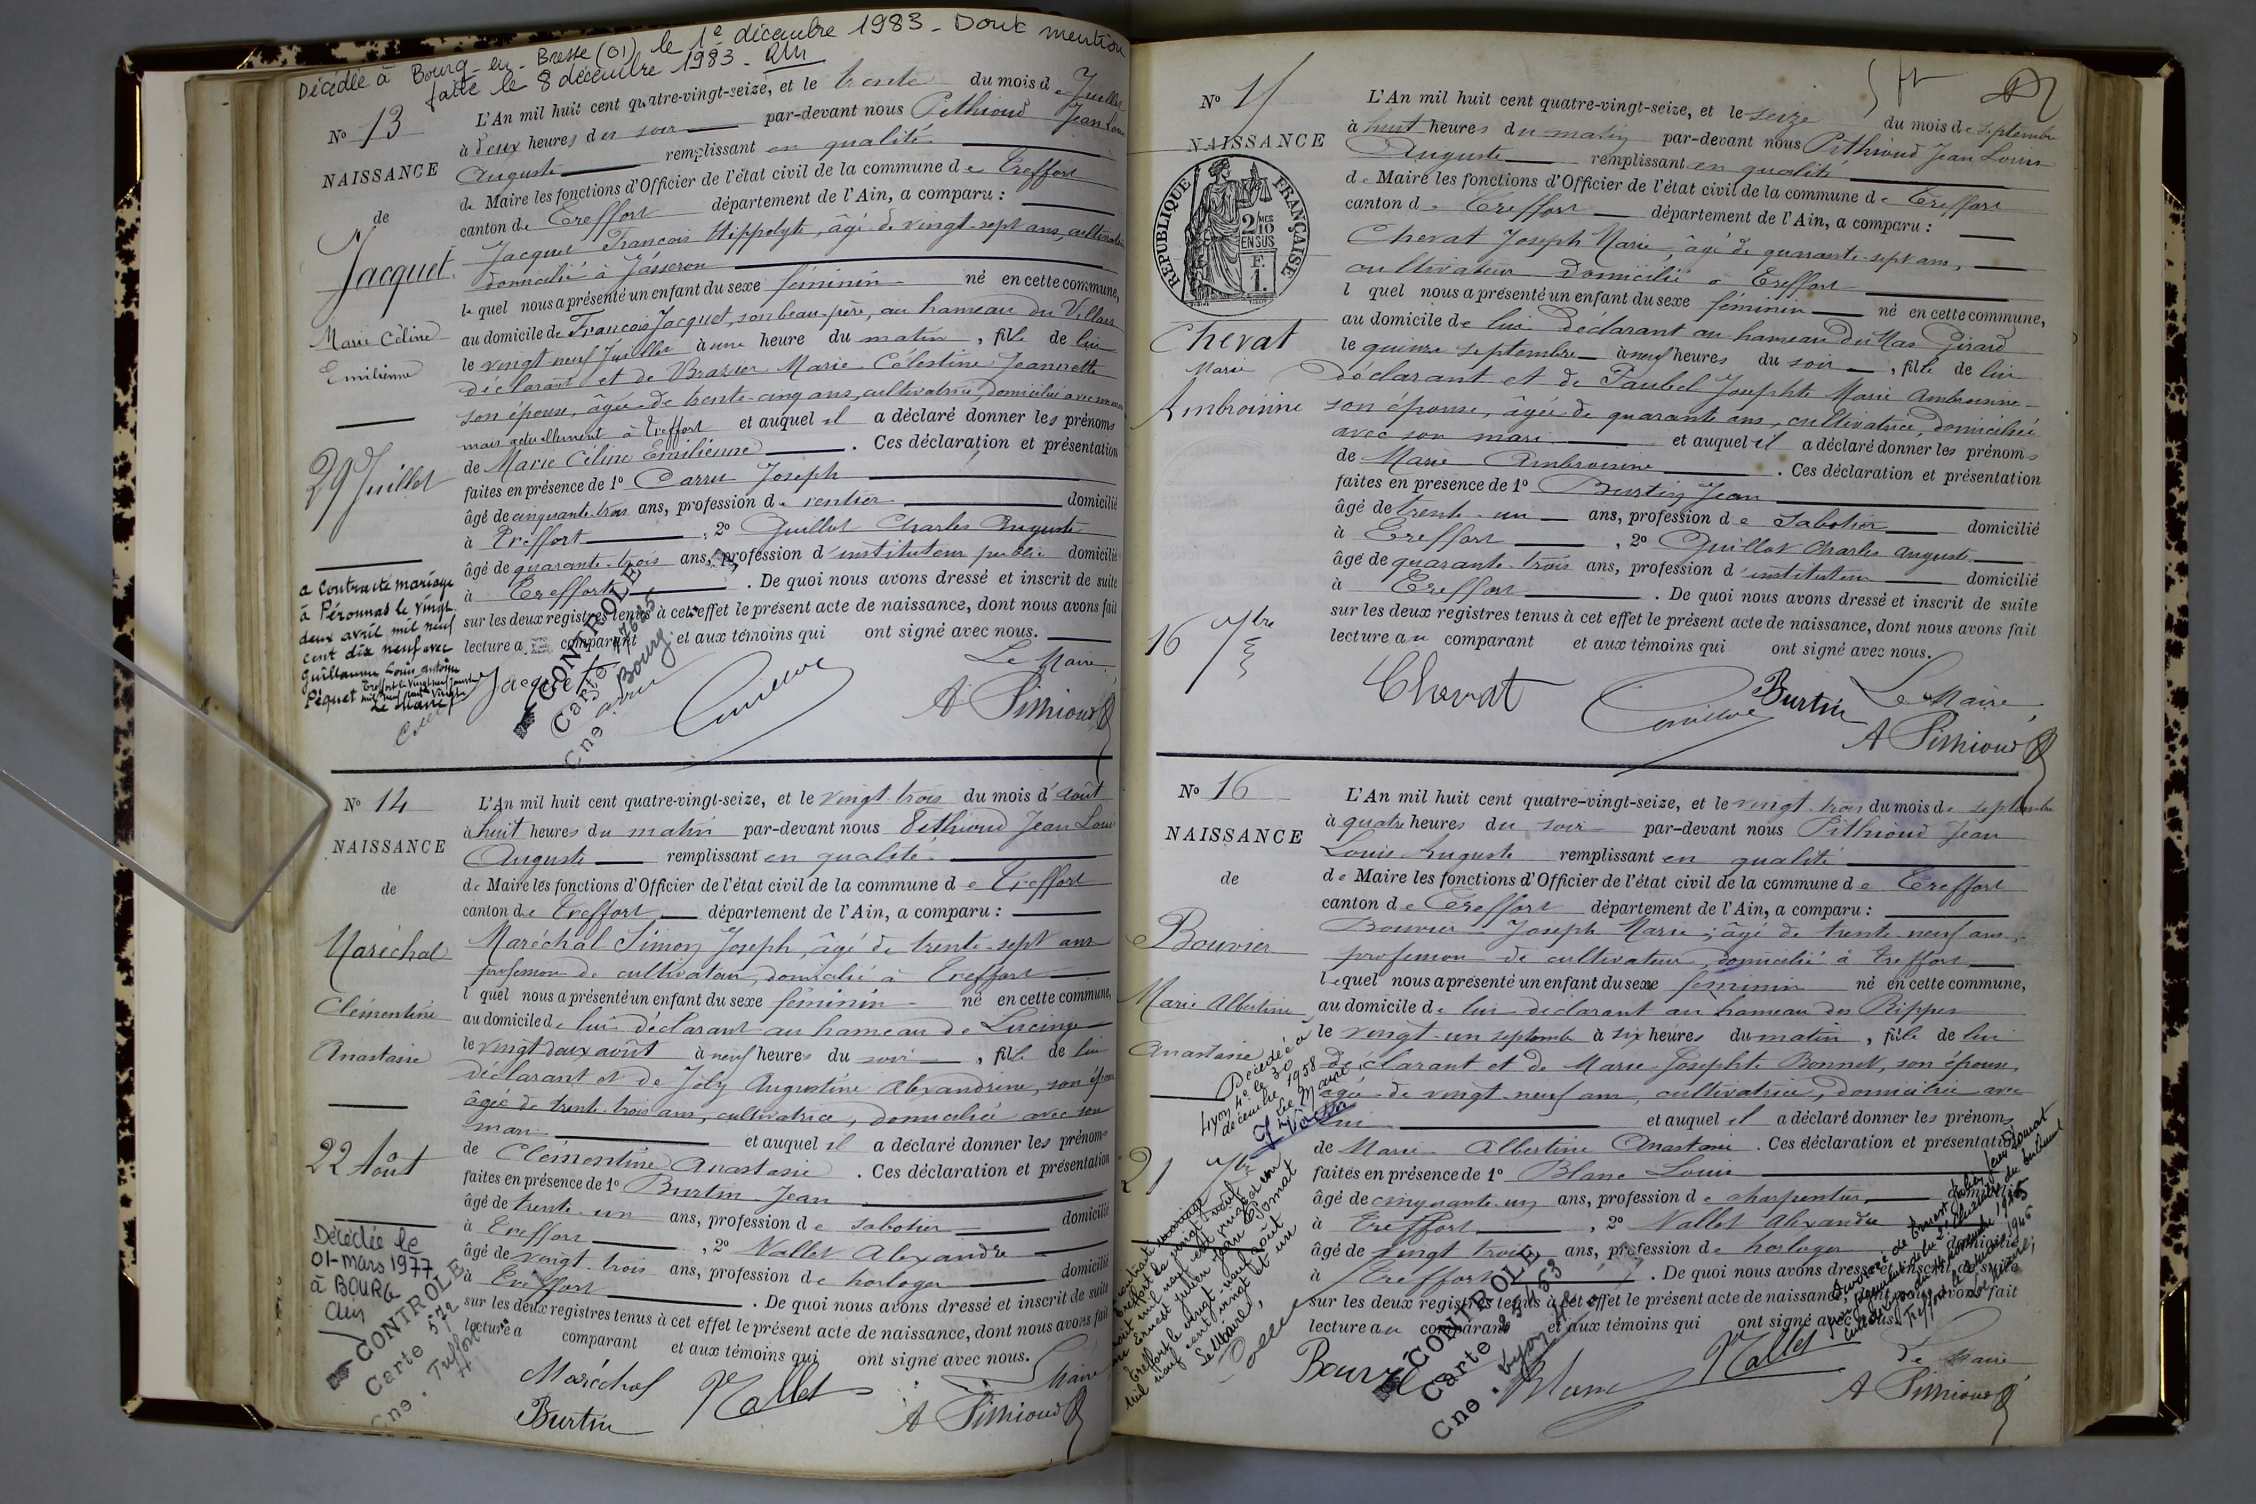 Décédée à Bourg-en-Bresse (01), le 1e décembre 1983 - Dont mention
faite le 8 décembre 1983 -
No 13
NAISSANCE
de
Jacquet
Marie Céline
Emilienne
29 Juillet
a contracté mariage
à Péronnas le vingt
deux avril mil neuf
cent dix neuf avec
guillaume Louis antoine
Péquet
Le Maire
L'An mil huit cent quatre-vingt-seize, et le trente du mois de Juillet
à deux heures du soir par-devant nous Pithioud Jean Louis
Auguste remplissant en qualité
de Maire les fonctions d'Officier de l'état civil de la commune de Treffort
canton de Treffort département de l'Ain, a comparu :
Jacquet François Hippolyte, âgé de vingt-sept ans, cultivateur
domicilié à Jasseron
lequel nous a présenté un enfant du sexe féminin né en cette commune,
au domicile de François Jacquet, son beau-père, au hameau du Villard
le vingt neuf Juillet à une heure du matin, fille de lui
déclarant et de Brazier Marie Célestine Jeannette
son épouse, âgée de trente-cinq ans, cultivatrice, domiciliée avec son mari
mais actuellement à Treffort et auquel il a déclaré donner les prénoms
de Marie Céline Emilienne. Ces déclaration et présentation
faites en présence de 1o Carru Joseph
âgé de cinquante-trois ans, profession de rentier domicilié
à Treffort, 2o Guillot Charles Auguste
âgé de quarante-trois ans, profession d'instituteur public domicilié
à Treffort. De quoi nous avons dressé et inscrit de suite
sur les deux registres tenus à cet effet le présent acte de naissance, dont nous avons fait
lecture a comparant et aux témoins qui ont signé avec nous.
Le Maire
Jacquet
A Pithioud
CONTROLE
Carte 17685
Cne. Bourg
No 14
NAISSANCE
de
Maréchal
Clémentine
Anastasie
22 Août
Décédée le
01-mars 1977
à BOURG
CONTROLE
Carte 572
Cne. Treffort
L'An mil huit cent quatre-vingt-seize, et le vingt-trois du mois d'août
à huit heures du matin par-devant nous Pithioud Jean Louis
Auguste remplissant en qualité
de Maire les fonctions d'Officier de l'état civil de la commune de Treffort
canton de Treffort département de l'Ain, a comparu :
Maréchal Simon Joseph, âgé de trente-sept ans
profession de cultivateur, domicilié à Treffort
l quel nous a présenté un enfant du sexe féminin né en cette commune,
au domicile de lui déclarant au hameau de Lucinge
le vingt deux août à neuf heures du soir, fille de lui
déclarant et de Joly Augustine Alexandrine, son épouse
âgée de trente-trois ans, cultivatrice, domiciliée avec son
mari et auquel il a déclaré donner les prénoms
de Clémentine Anastasie. Ces déclaration et présentation
faites en présence de 1o Burtin Jean
âgé de trente-un ans, profession de sabotier domicilié
à Treffort, 2o Nallet Alexandre
âgé de vingt-trois ans, profession de horloger domicilié
à Treffort. De quoi nous avons dressé et inscrit de suite
sur les deux registres tenus à cet effet le présent acte de naissance, dont nous avons fait
lecture a comparant et aux témoins qui ont signé avec nous.
Maréchal Nallet
Maire
Burtin A Pithioud
No 15
NAISSANCE
RÉPUBLIQUE FRANÇAISE
2 MES 10
EN SUS
F.
1.
Chevat
Marie
Ambroisine
16 7bre
L'An mil huit cent quatre-vingt-seize, et le seize du mois de septembre
à huit heures du matin par-devant nous Pithioud Jean Louis
Auguste remplissant en qualité
de Maire les fonctions d'Officier de l'état civil de la commune de Treffort
canton de Treffort département de l'Ain, a comparu :
Chevat Joseph Marie, âgé de quarante-sept ans,
cultivateur domicilié à Treffort
l quel nous a présenté un enfant du sexe féminin né en cette commune,
au domicile de lui déclarant au hameau du Mas Girard
le quinze septembre à neuf heures du soir, fille de lui
déclarant et de Paubel Josephte Marie Ambroisine
son épouse, âgée de quarante ans, cultivatrice, domiciliée
avec son mari et auquel il a déclaré donner les prénoms
de Marie Ambroisine. Ces déclaration et présentation
faites en présence de 1o Burtin Jean
âgé de trente-un ans, profession de sabotier domicilié
à Treffort, 2o Guillot Charles Auguste
âgé de quarante-trois ans, profession d'instituteur domicilié
à Treffort. De quoi nous avons dressé et inscrit de suite
sur les deux registres tenus à cet effet le présent acte de naissance, dont nous avons fait
lecture au comparant et aux témoins qui ont signé avec nous.
Chevat Burtin Le Maire,
A Pithioud
No 16
NAISSANCE
de
Bouvier
Marie Albertine
Anastasie
Décédée à
Lyon 4e le 30
décembre 1958
Le Maire
21 7bre
L'An mil huit cent quatre-vingt-seize, et le vingt-trois du mois de septembre
à quatre heures du soir par-devant nous Pithioud Jean
Louis Auguste remplissant en qualité
de Maire les fonctions d'Officier de l'état civil de la commune de Treffort
canton de Treffort département de l'Ain, a comparu :
Bouvier Joseph Marie, âgé de trente-neuf ans,
profession de cultivateur, domicilié à Treffort
lequel nous a présenté un enfant du sexe féminin né en cette commune,
au domicile de lui déclarant au hameau des Rippes
le vingt-un septembre à six heures du matin, fille de lui
déclarant et de Marie Josephte Bonnet, son épouse,
âgée de vingt-neuf ans, cultivatrice, domiciliée avec
lui et auquel il a déclaré donner les prénoms
de Marie Albertine Anastasie. Ces déclaration et présentation
faites en présence de 1o Blanc Louis
âgé de cinquante-un ans, profession de charpentier
à Treffort, 2o Nallet Alexandre
âgé de vingt trois ans, profession de horloger domicilié
à Treffort. De quoi nous avons dressé et inscrit de suite
sur les deux registres tenus à cet effet le présent acte de naissance, dont nous avons fait
lecture au comparant et aux témoins qui ont signé avec nous.
Nallet
Le Maire
A Pithioud
CONTROLE
Carte
Cne. Lyon